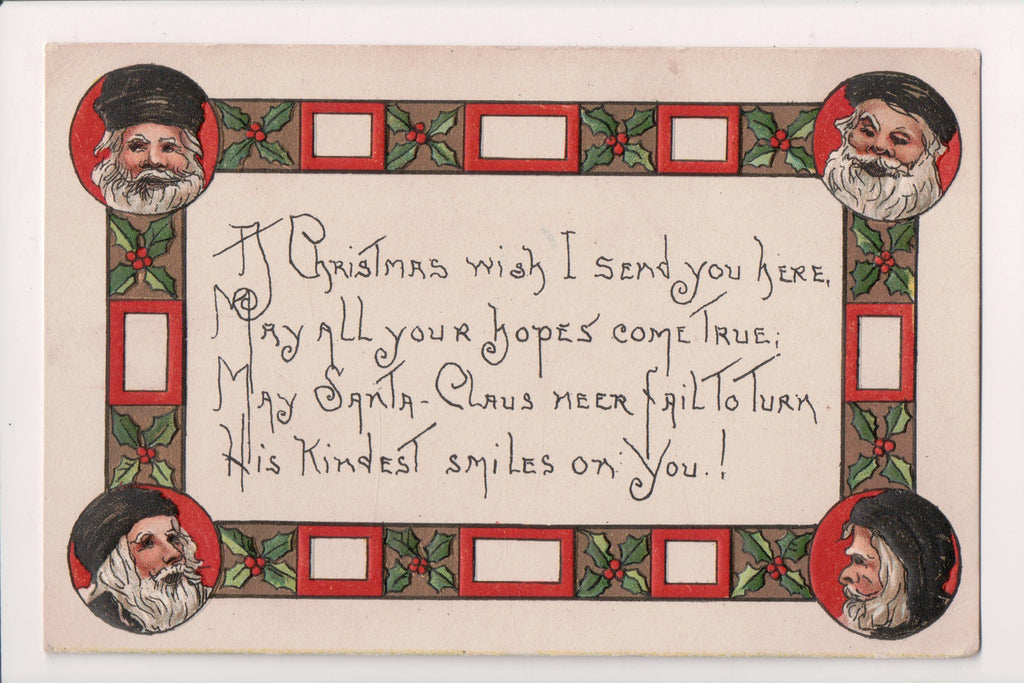 A Christmas wish I send you here,
May all your hopes come true;
May Santa-Claus neer fail to turn
His kindest smiles on you.!